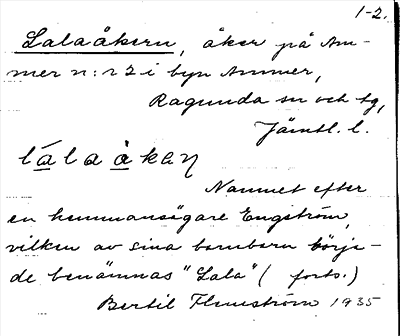 1-2.
Lalaåkern, åker på Am-
mer n:r 2 i byn Ammer,
Ragunda sn och tg,
Jämtl. l.
lálaàkaɳ
Namnet efter
en hemmansägare Engström,
vilken av sina barnbarn börja-
de benämnas "Lala" ( forts.)
Bertil Flemström 1935